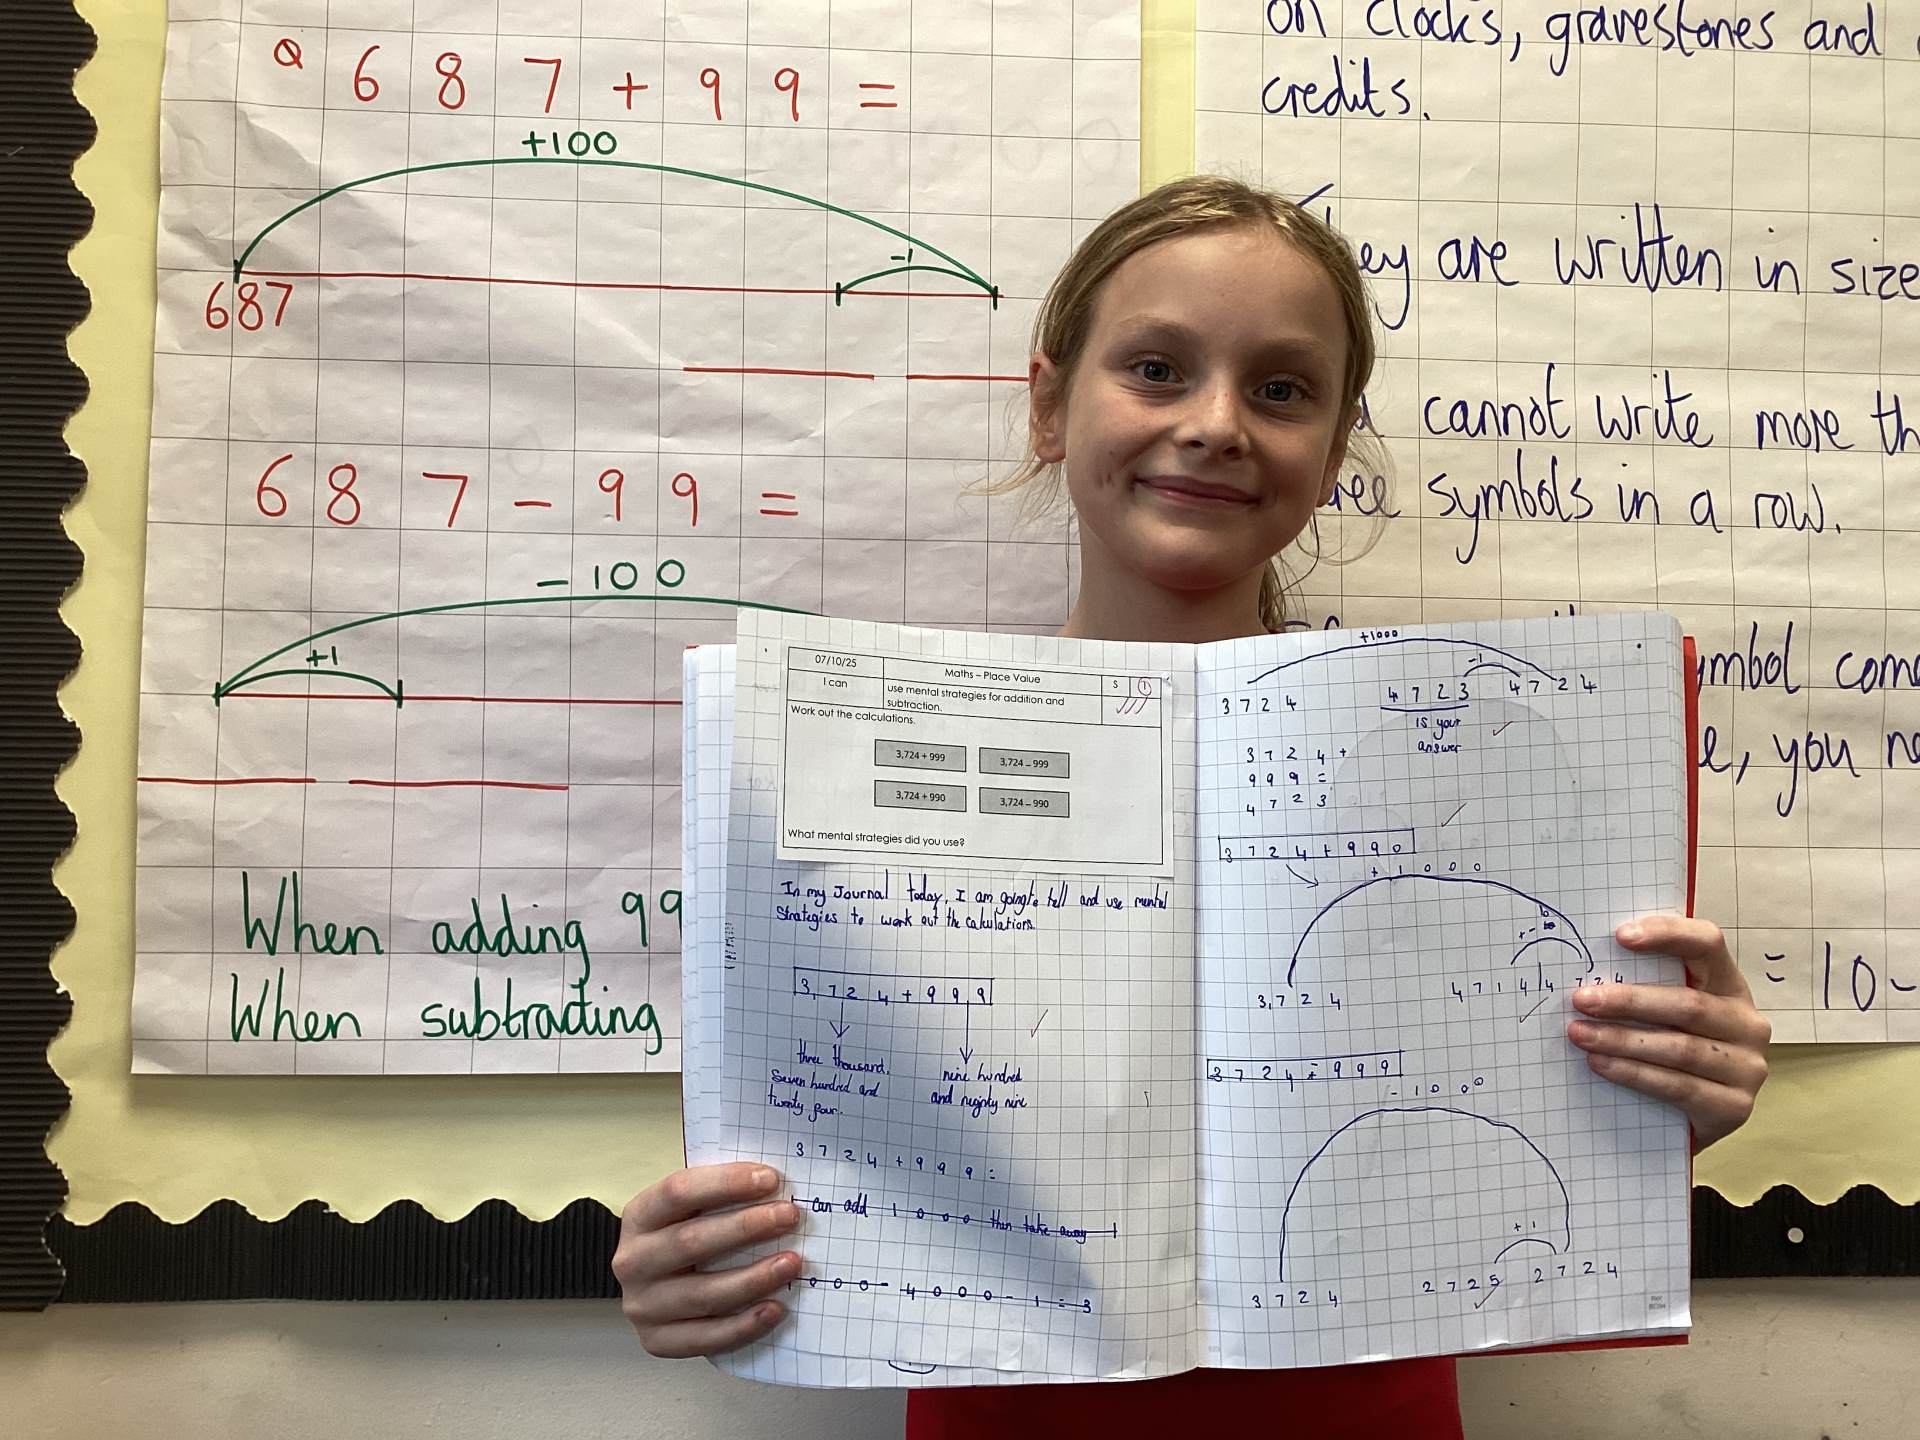 Q 687+99=
+100
-1
687
687-99=
-100
+1
When adding 99
When subtracting
on clocks, gravestones and
credits.
ey are written in size
cannot write more th
ree symbols in a row.
symbol com
e, you n
= 10-
07/10/25
Maths – Place Value
S
T
I can
use mental strategies for addition and
subtraction.
Work out the calculations.
3,724 + 999
3,724 – 999
3,724 + 990
3,724 – 990
What mental strategies did you use?
In my Journal today, I am going to tell and use mental
strategies to work out the calculations.
3,724+999
three thousand,
seven hundred and
twenty four.
nine hundred
and neginty nine
3724+999=
I can add 1000 then take away 1
1000-4000-1=3
+1000
-1
3724
4723
4724
is your
answer
3724+
999=
4723
3724+990
+1000
+-10
3,724
4714
4724
3724-999
-1000
+1
3724
2725
2724